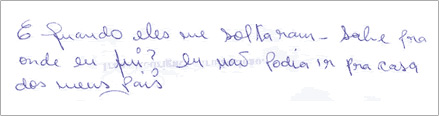 E quando eles me soltaram - sabe pra
onde eu fui? eu não podia ir pra casa
dos meus pais